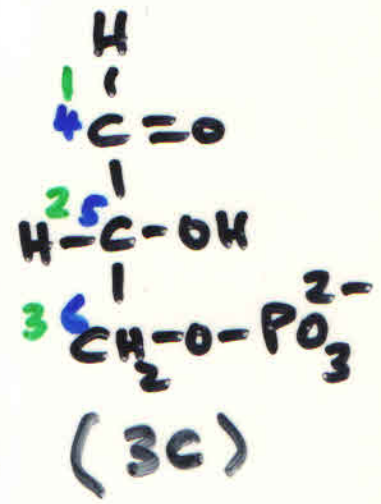 H
1
4 C=O
2 5
H-C-OH
3 6 CH2-O-PO3 2-
(3C)